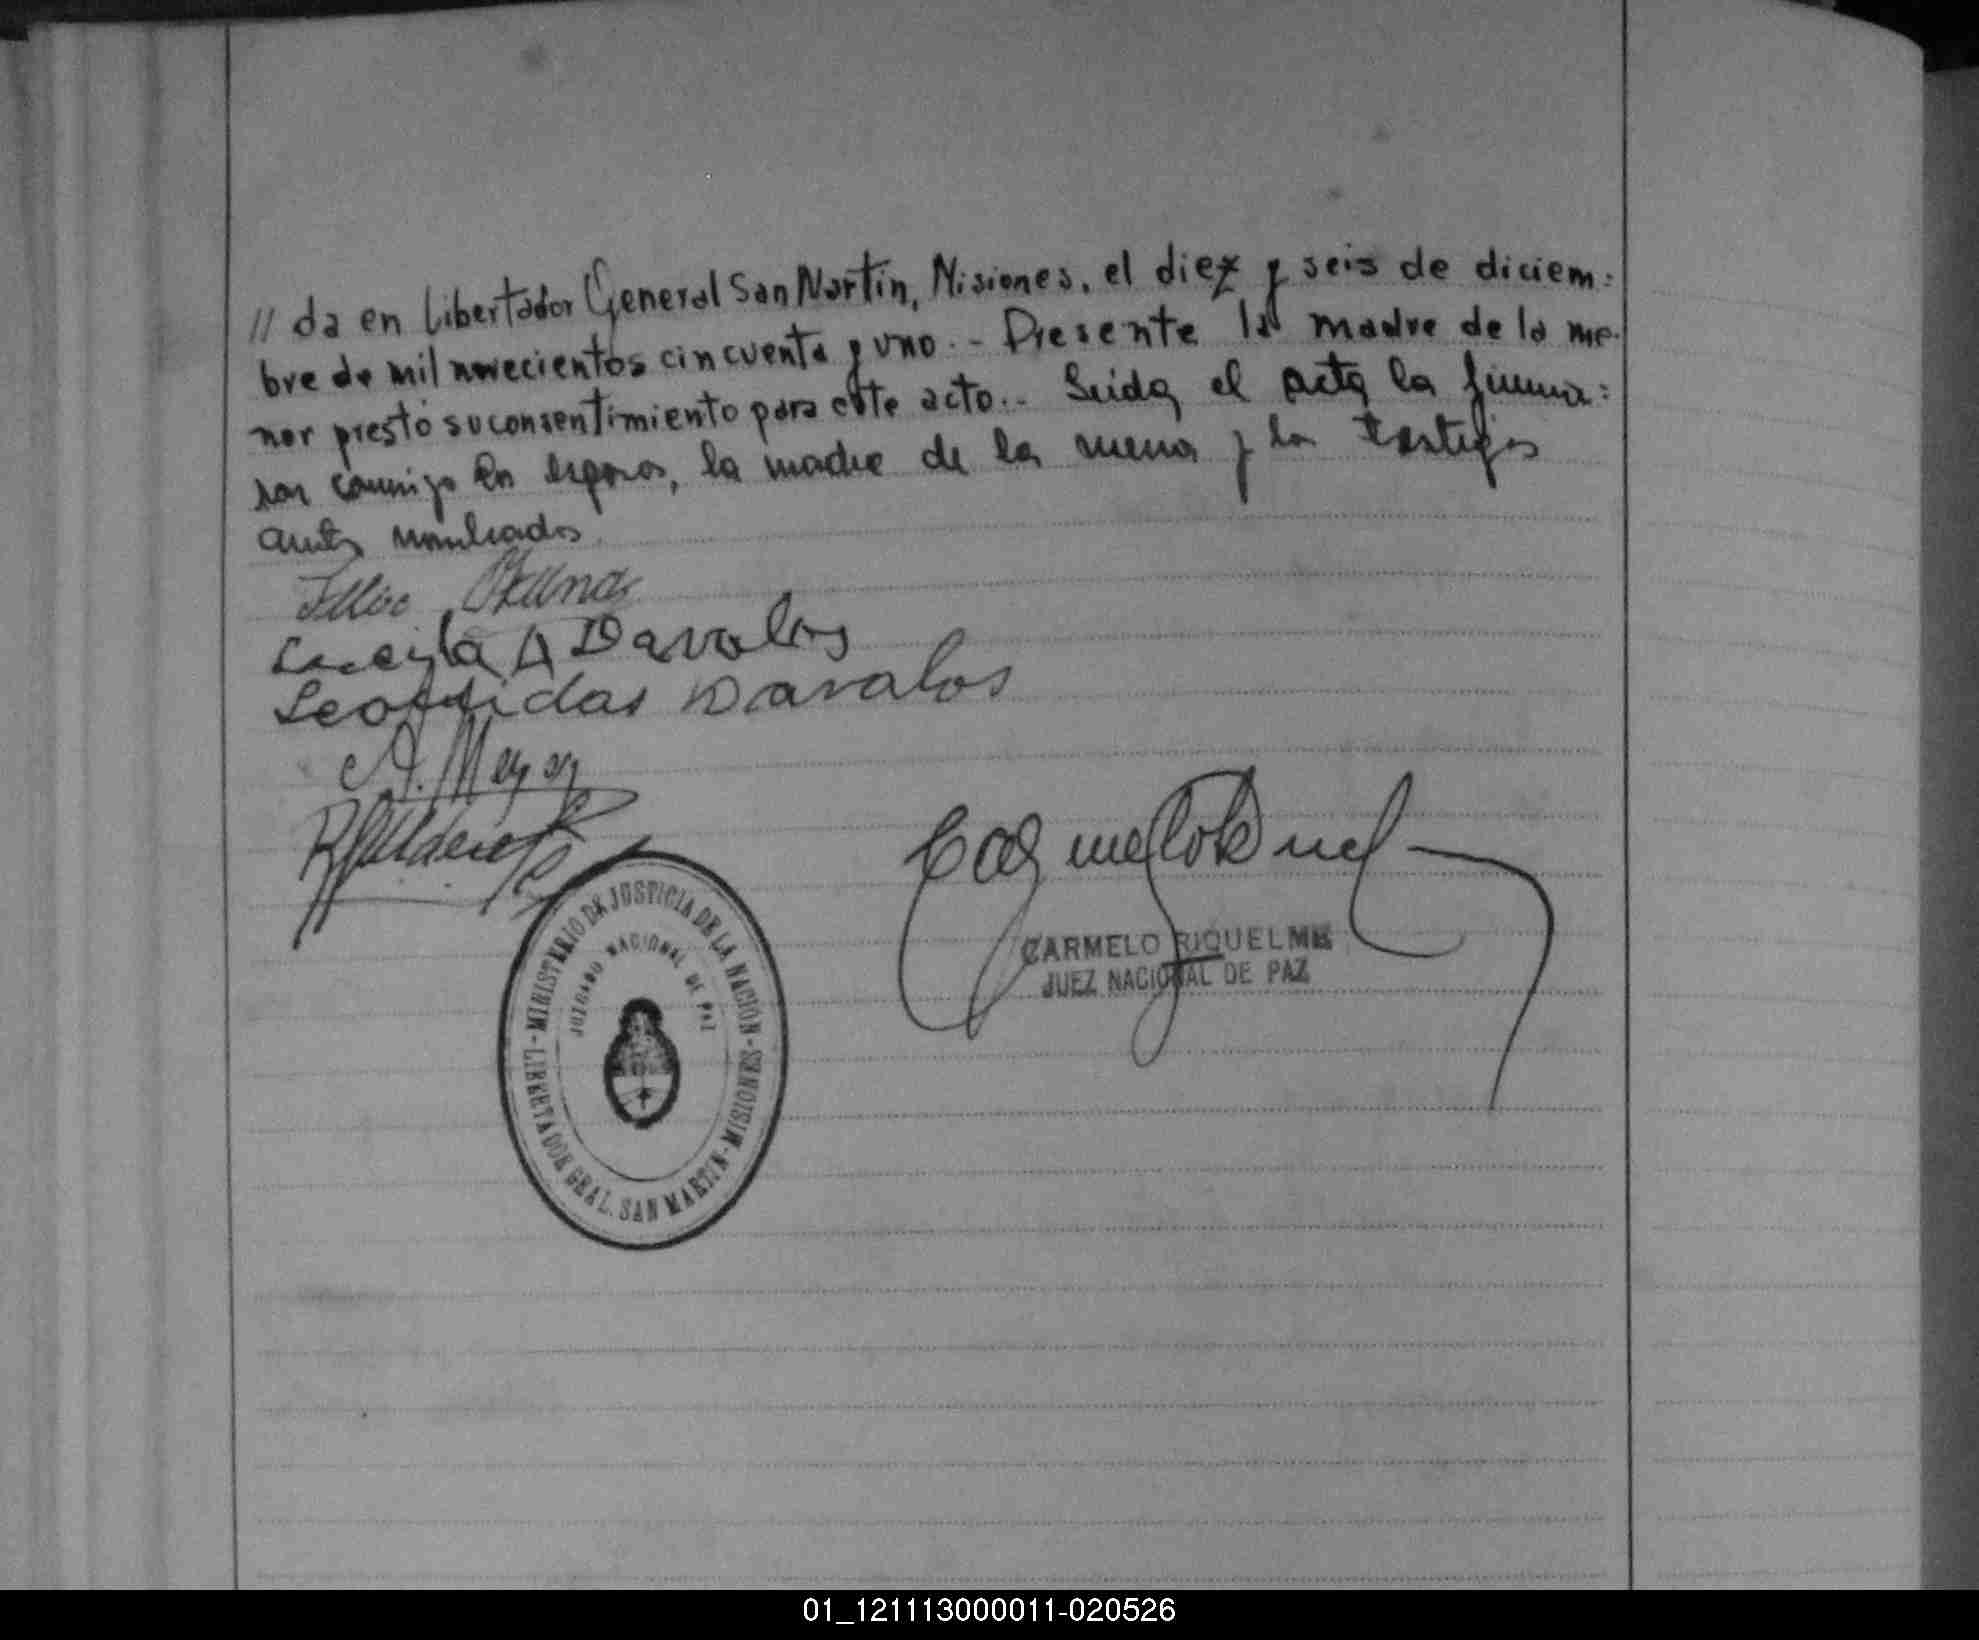 // da en Libertador General San Martín, Misiones, el diez y seis de diciem=
bre de mil novecientos cincuenta y uno.- Presente la madre de la me-
nor prestó su consentimiento para este acto.- Leida el acta la firma=
ron conmigo los esposos, la madre de la menor y los testigos
antes nombrados
Lucila A Davalos
Leonidas Davalos
A. Meyer
CARMELO RIQUELME
JUEZ NACIONAL DE PAZ
MINISTERIO DE JUSTICIA DE LA NACION - MISIONES -
LIBERTADOR GRAL. SAN MARTIN -
JUZGADO NACIONAL DE PAZ
01_121113000011-020526